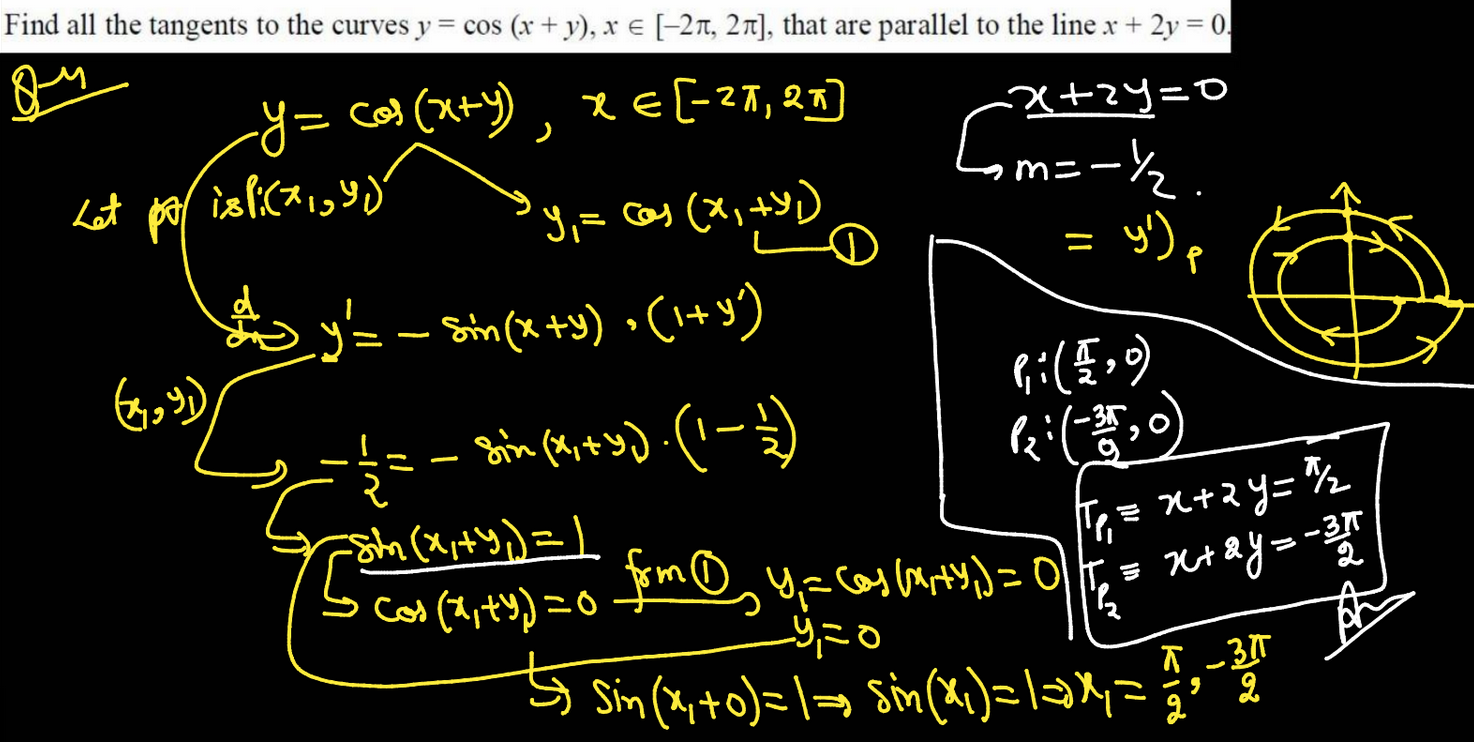 Find all the tangents to the curves y = cos (x + y), x ∈ [–2π, 2π], that are parallel to the line x + 2y = 0.
y = cos (x+y) , x ∈ [-2π, 2π]
x+2y=0
m = -1/2 .
= y')p
Let pt is P:(x₁, y₁)
y₁ = cos (x₁+y₁) ①
d/dx y' = - sin(x+y) · (1+y')
(x₁, y₁)
-1/2 = - sin (x₁+y₁) · (1 - 1/2)
sin (x₁+y₁) = 1
cos (x₁+y₁) = 0 from ① y₁ = cos (x₁+y₁) = 0
y₁ = 0
sin (x₁+0) = 1 ⇒ sin(x₁) = 1 ⇒ x₁ = π/2, -3π/2
P₁:(π/2, 0)
P₂:(-3π/2, 0)
T_P₁ ≡ x+2y = π/2
T_P₂ ≡ x+2y = -3π/2